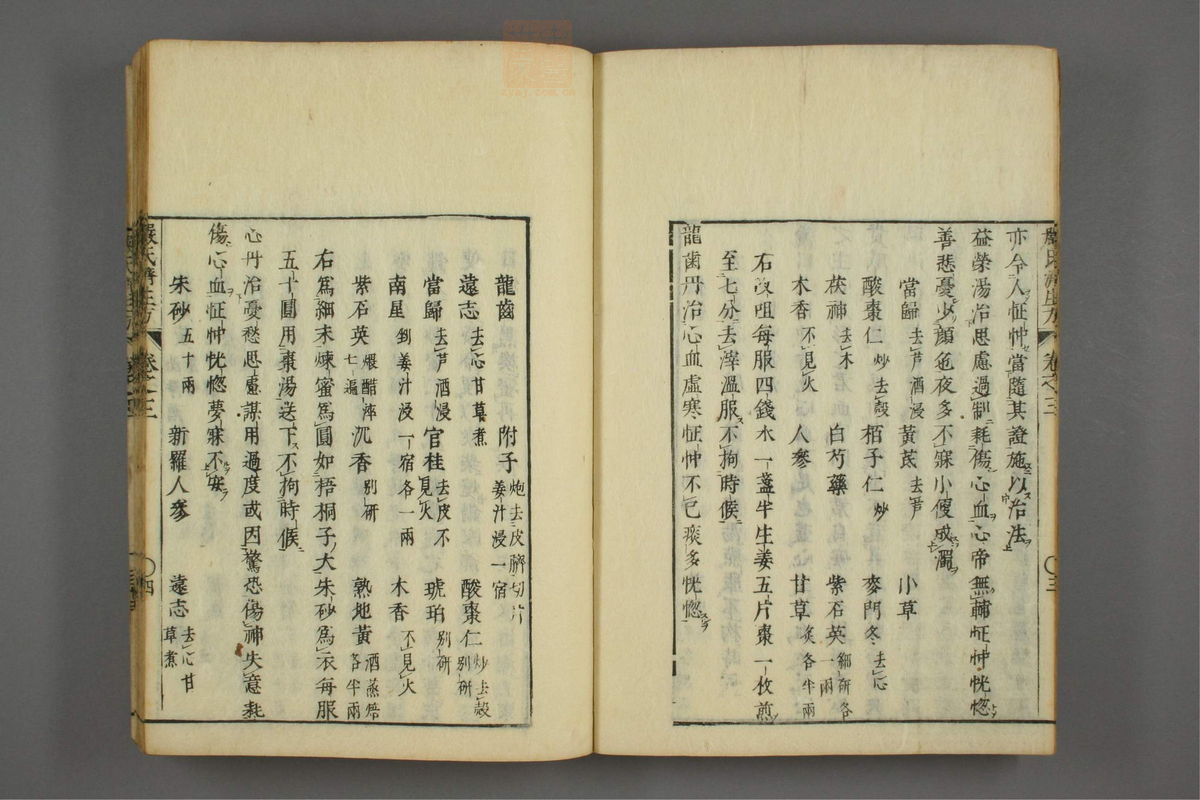 嚴氏濟生方 卷之三 〇三
亦令人怔忡當隨其證施以治法
益榮湯治思慮過制耗傷心血心帝無輔怔忡恍惚
善悲憂少顏色夜多不寐小便成濁
當歸去芦酒浸 黃芪去芦 小草
酸棗仁炒去殼 栢子仁炒 麥門冬去心
茯神去木 白芍藥 紫石英細研各一兩
木香不見火 人參 甘草炙各半兩
右㕮咀每服四錢水一盞半生姜五片棗一枚煎
至七分去滓溫服不拘時候
龍齒丹治心血虛寒怔忡不已痰多恍惚
龍齒 附子炮去皮臍切片姜汁浸一宿
遠志去心甘草煮 酸棗仁炒去殼別研
當歸去芦酒浸 官桂去皮不見火 琥珀別研
南星剉姜汁浸一宿各一兩 木香不見火
紫石英煅醋淬七遍 沉香別研 熟地黃酒蒸焙各半兩
右爲細末煉蜜爲圓如梧桐子大朱砂爲衣每服
五十圓用棗湯送下不拘時候
心丹治憂愁思慮謀用過度或因驚恐傷神失意耗
傷心血怔忡恍惚夢寐不安
朱砂五十兩 新羅人參 遠志去心甘草煮
嚴氏濟生方 卷之三 〇四